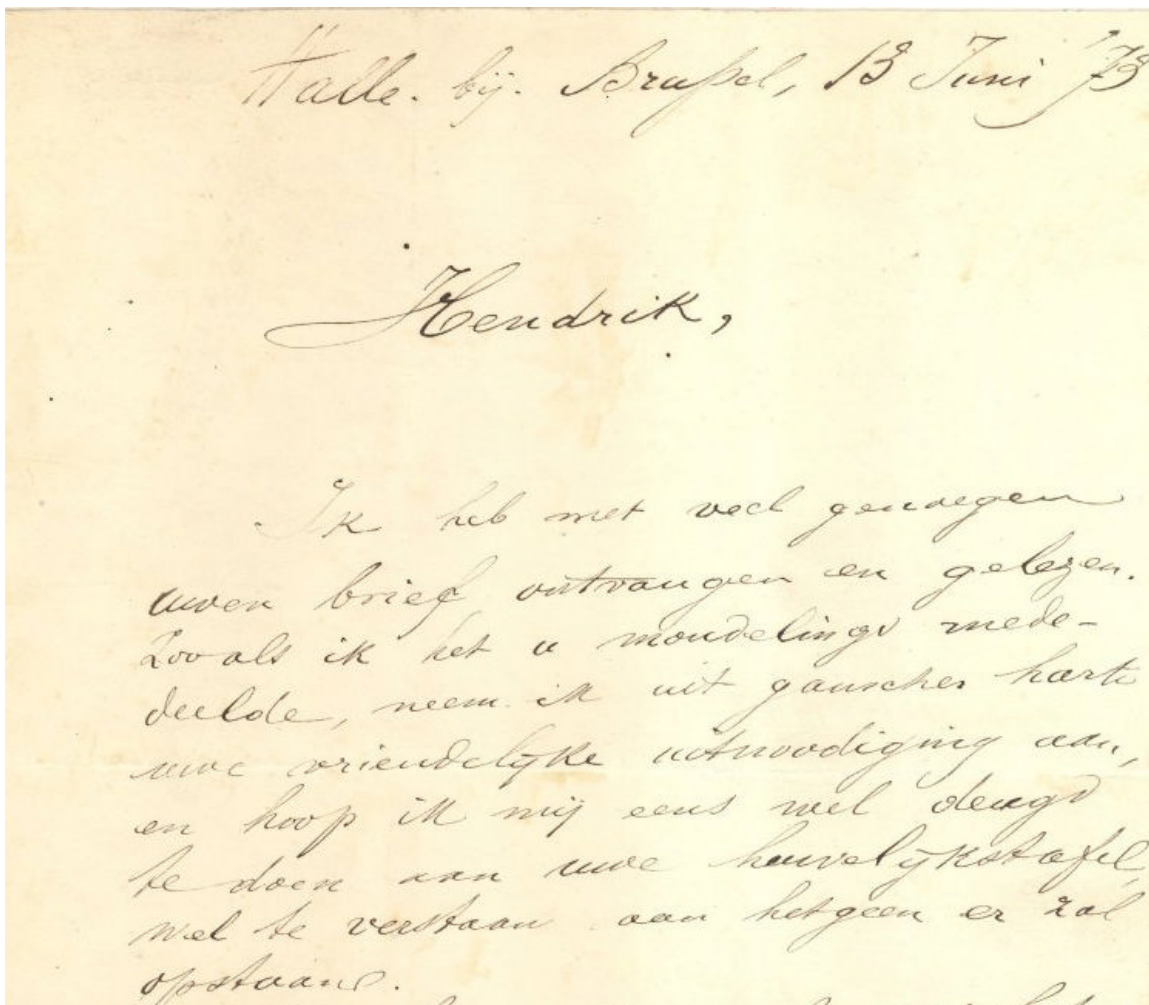 Halle. bij. Brussel, 13 Juni '73
Hendrik,
Ik heb met veel genoegen
uwen brief ontvangen en gelezen.
Zooals ik het u mondelings mede-
deelde, neem ik uit ganscher harte
uwe vriendelijke uitnoodiging aan,
en hoop ik mij eens wel deugd
te doen aan uwe houwelijkstafel,
wel te verstaan aan hetgeen er zal
opstaan.